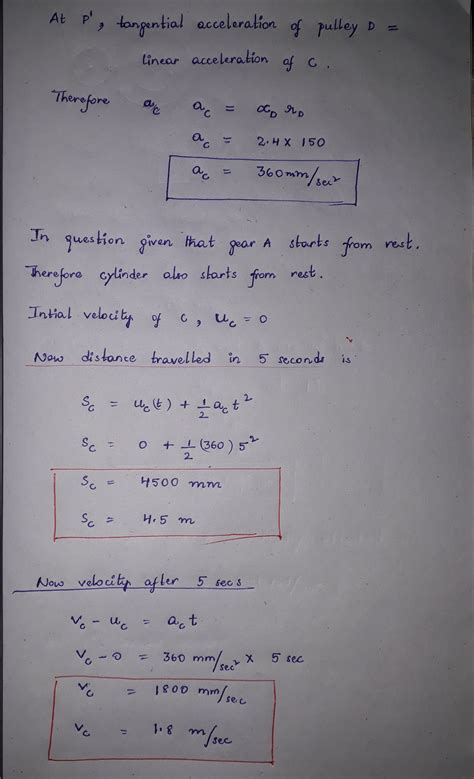 At P', tangential acceleration of pulley D =
linear acceleration of C.
Therefore a_c a_c = α_D r_D
a_c = 2.4 × 150
a_c = 360 mm/sec²
In question given that gear A starts from rest.
Therefore cylinder also starts from rest.
Intial velocity of C, u_c = 0
Now distance travelled in 5 seconds is
S_c = u_c(t) + 1/2 a_c t²
S_c = 0 + 1/2 (360) 5²
S_c = 4500 mm
S_c = 4.5 m
Now velocity after 5 secs
V_c - u_c = a_c t
V_c - 0 = 360 mm/sec² × 5 sec
V_c = 1800 mm/sec
V_c = 1.8 m/sec